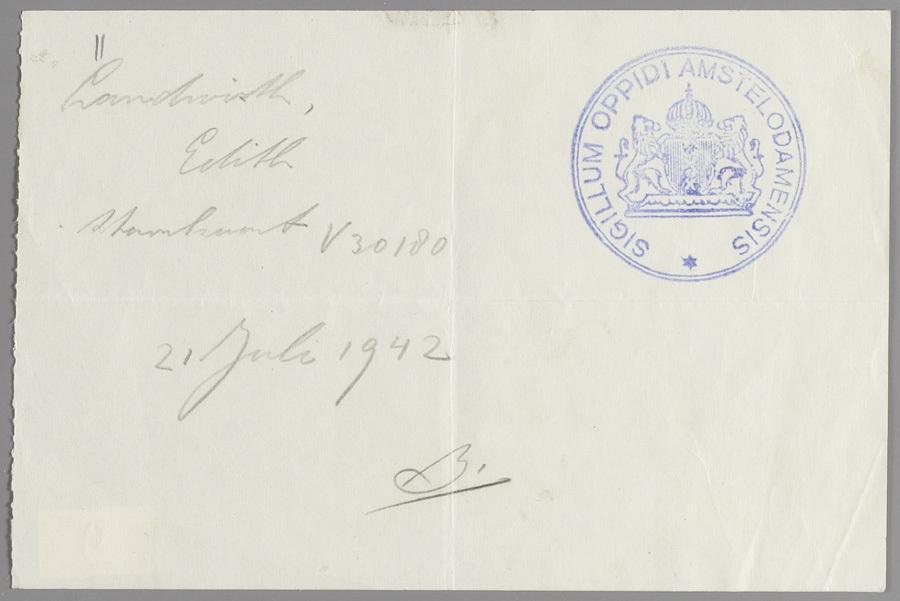 Landwirth,
Edith
stamkaart V 30180
21 Juli 1942
B.
SIGILLUM OPPIDI AMSTELODAMENSIS